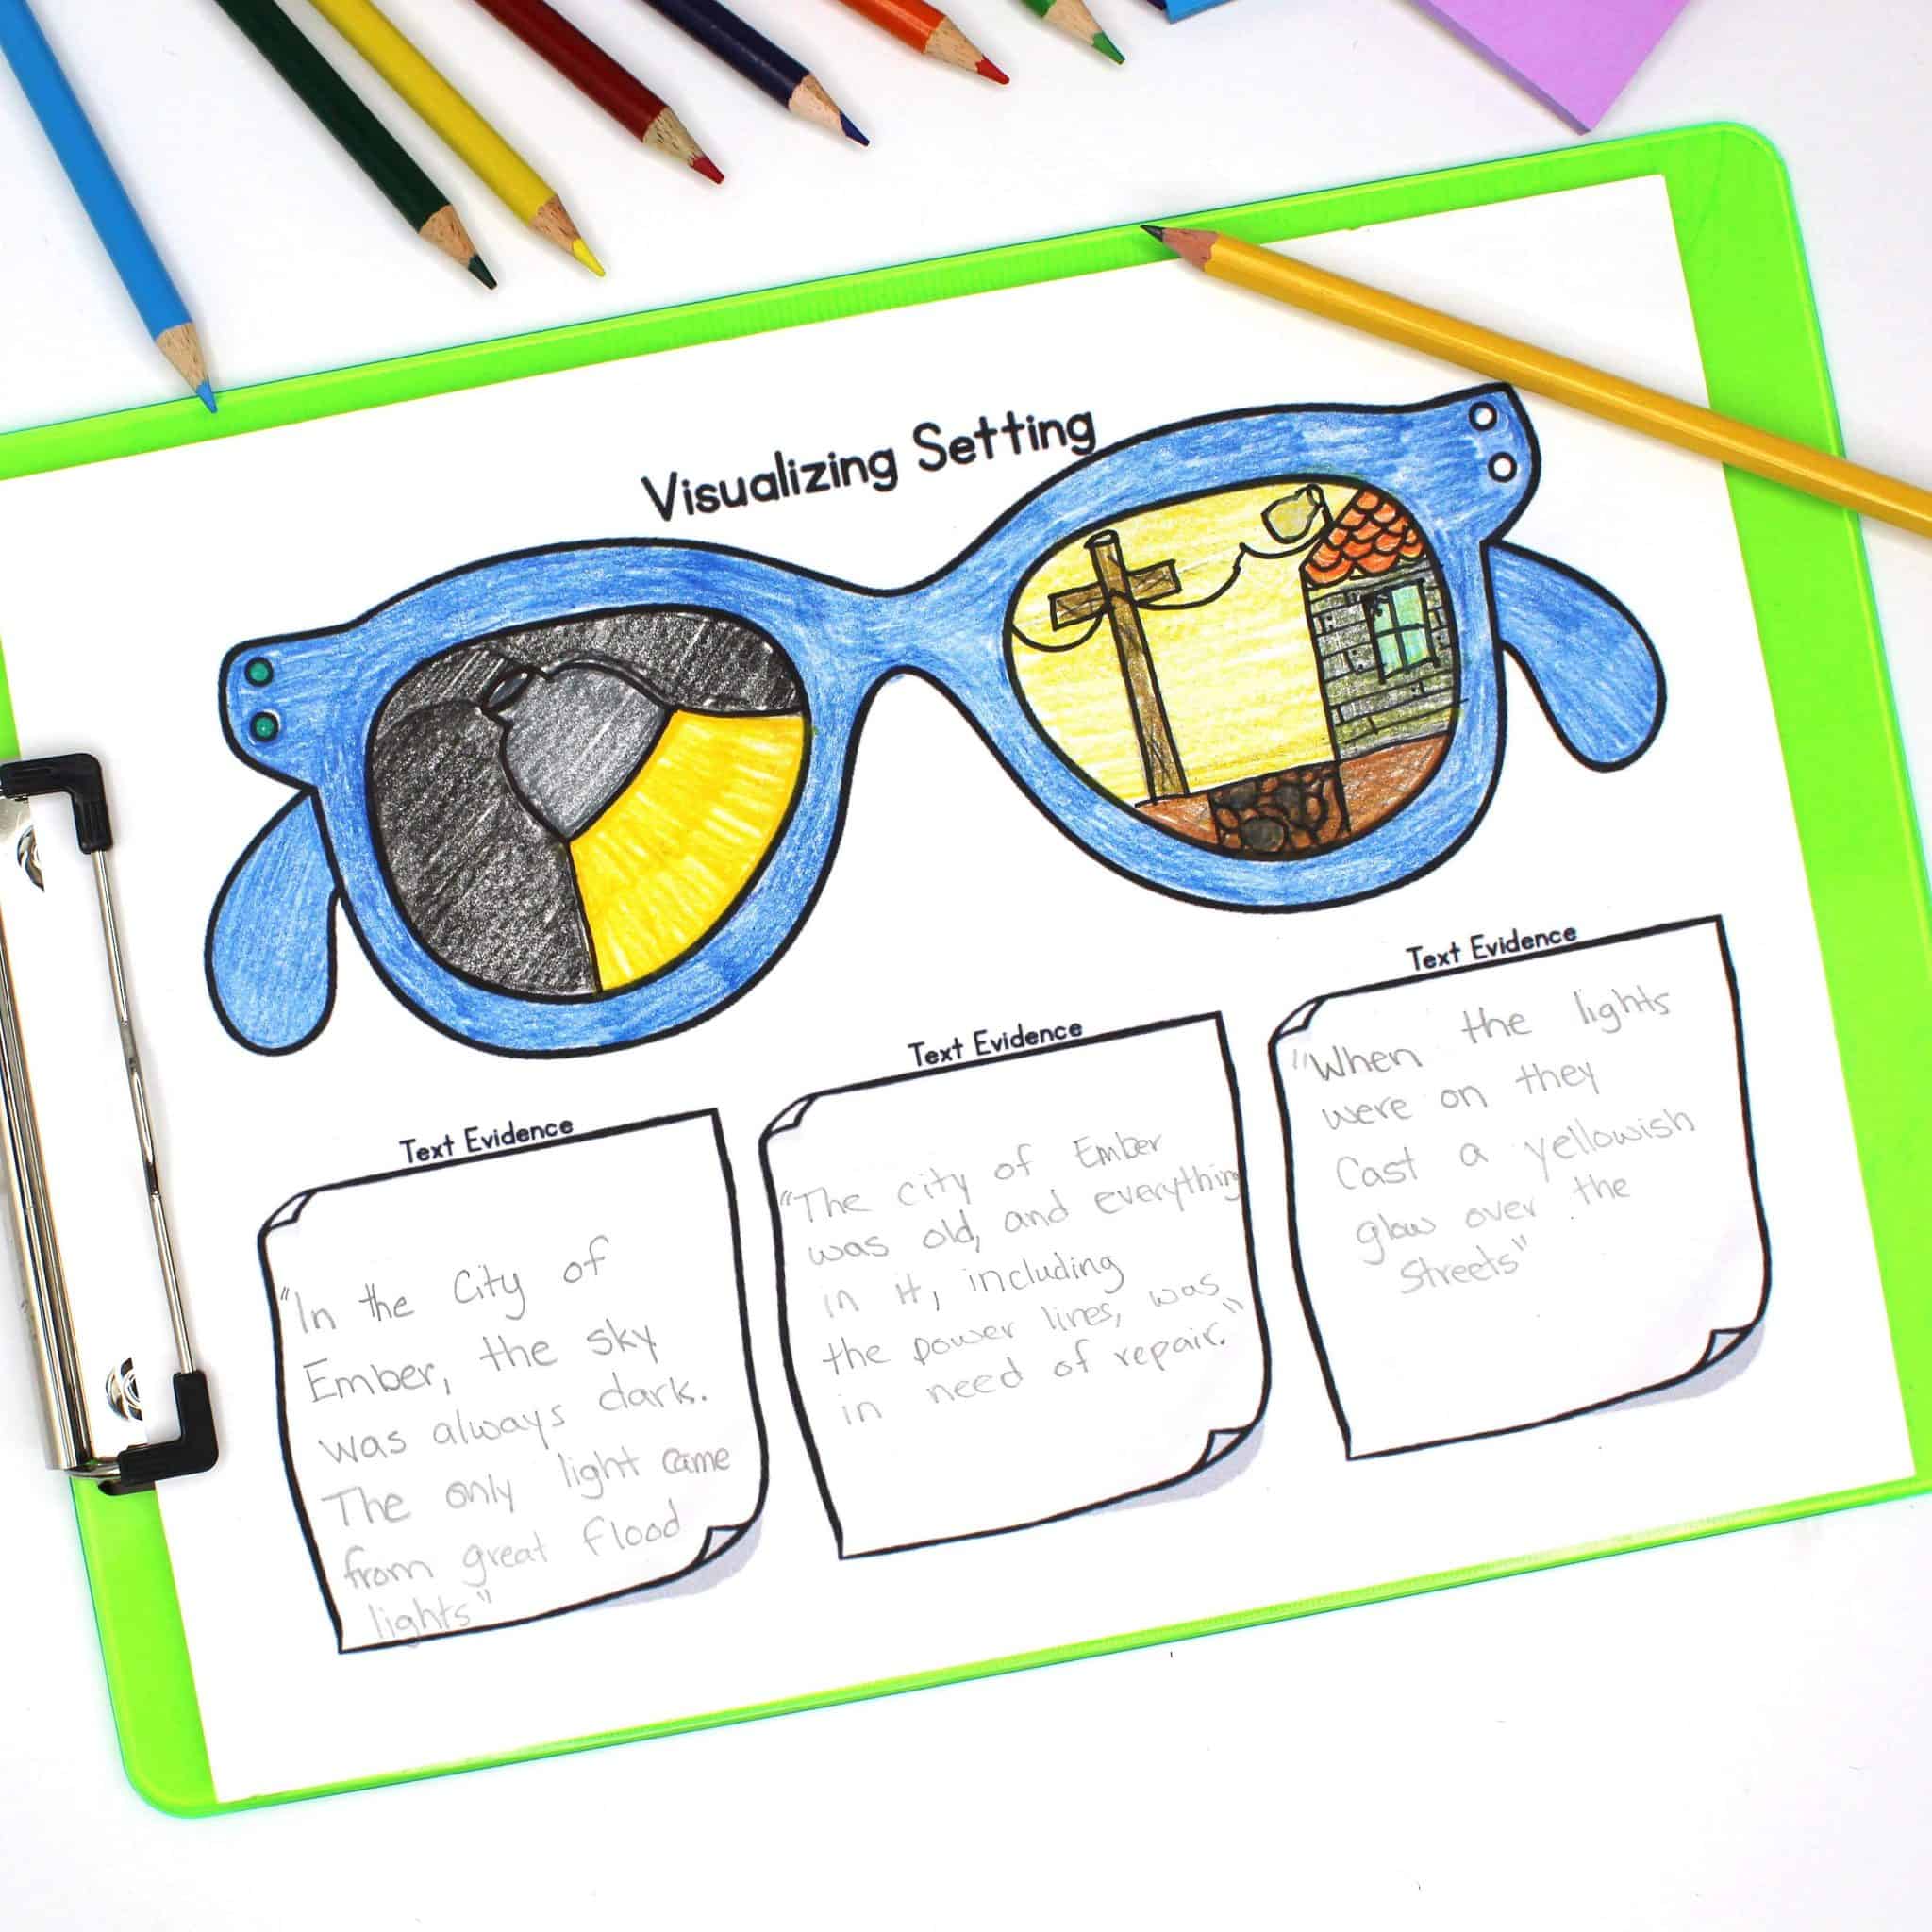 Visualizing Setting
Text Evidence
"In the City of
Ember, the sky
was always dark.
The only light came
from great flood
lights"
Text Evidence
"The city of Ember
was old, and everything
in it, including
the power lines, was
in need of repair."
Text Evidence
"When the lights
were on they
Cast a yellowish
glow over the
Streets"